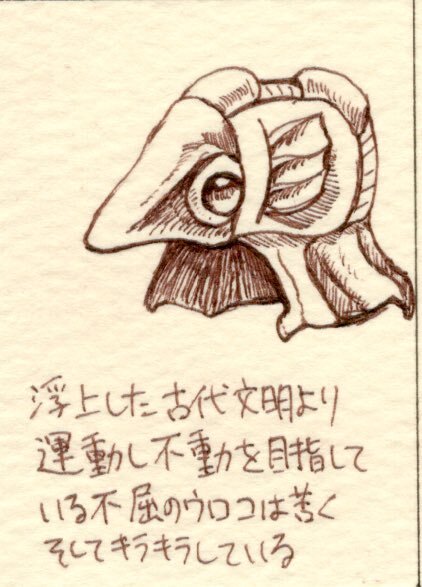 浮上した古代文明より
運動し不動を目指して
いる不屈のウロコは苦く
そしてキラキラしている